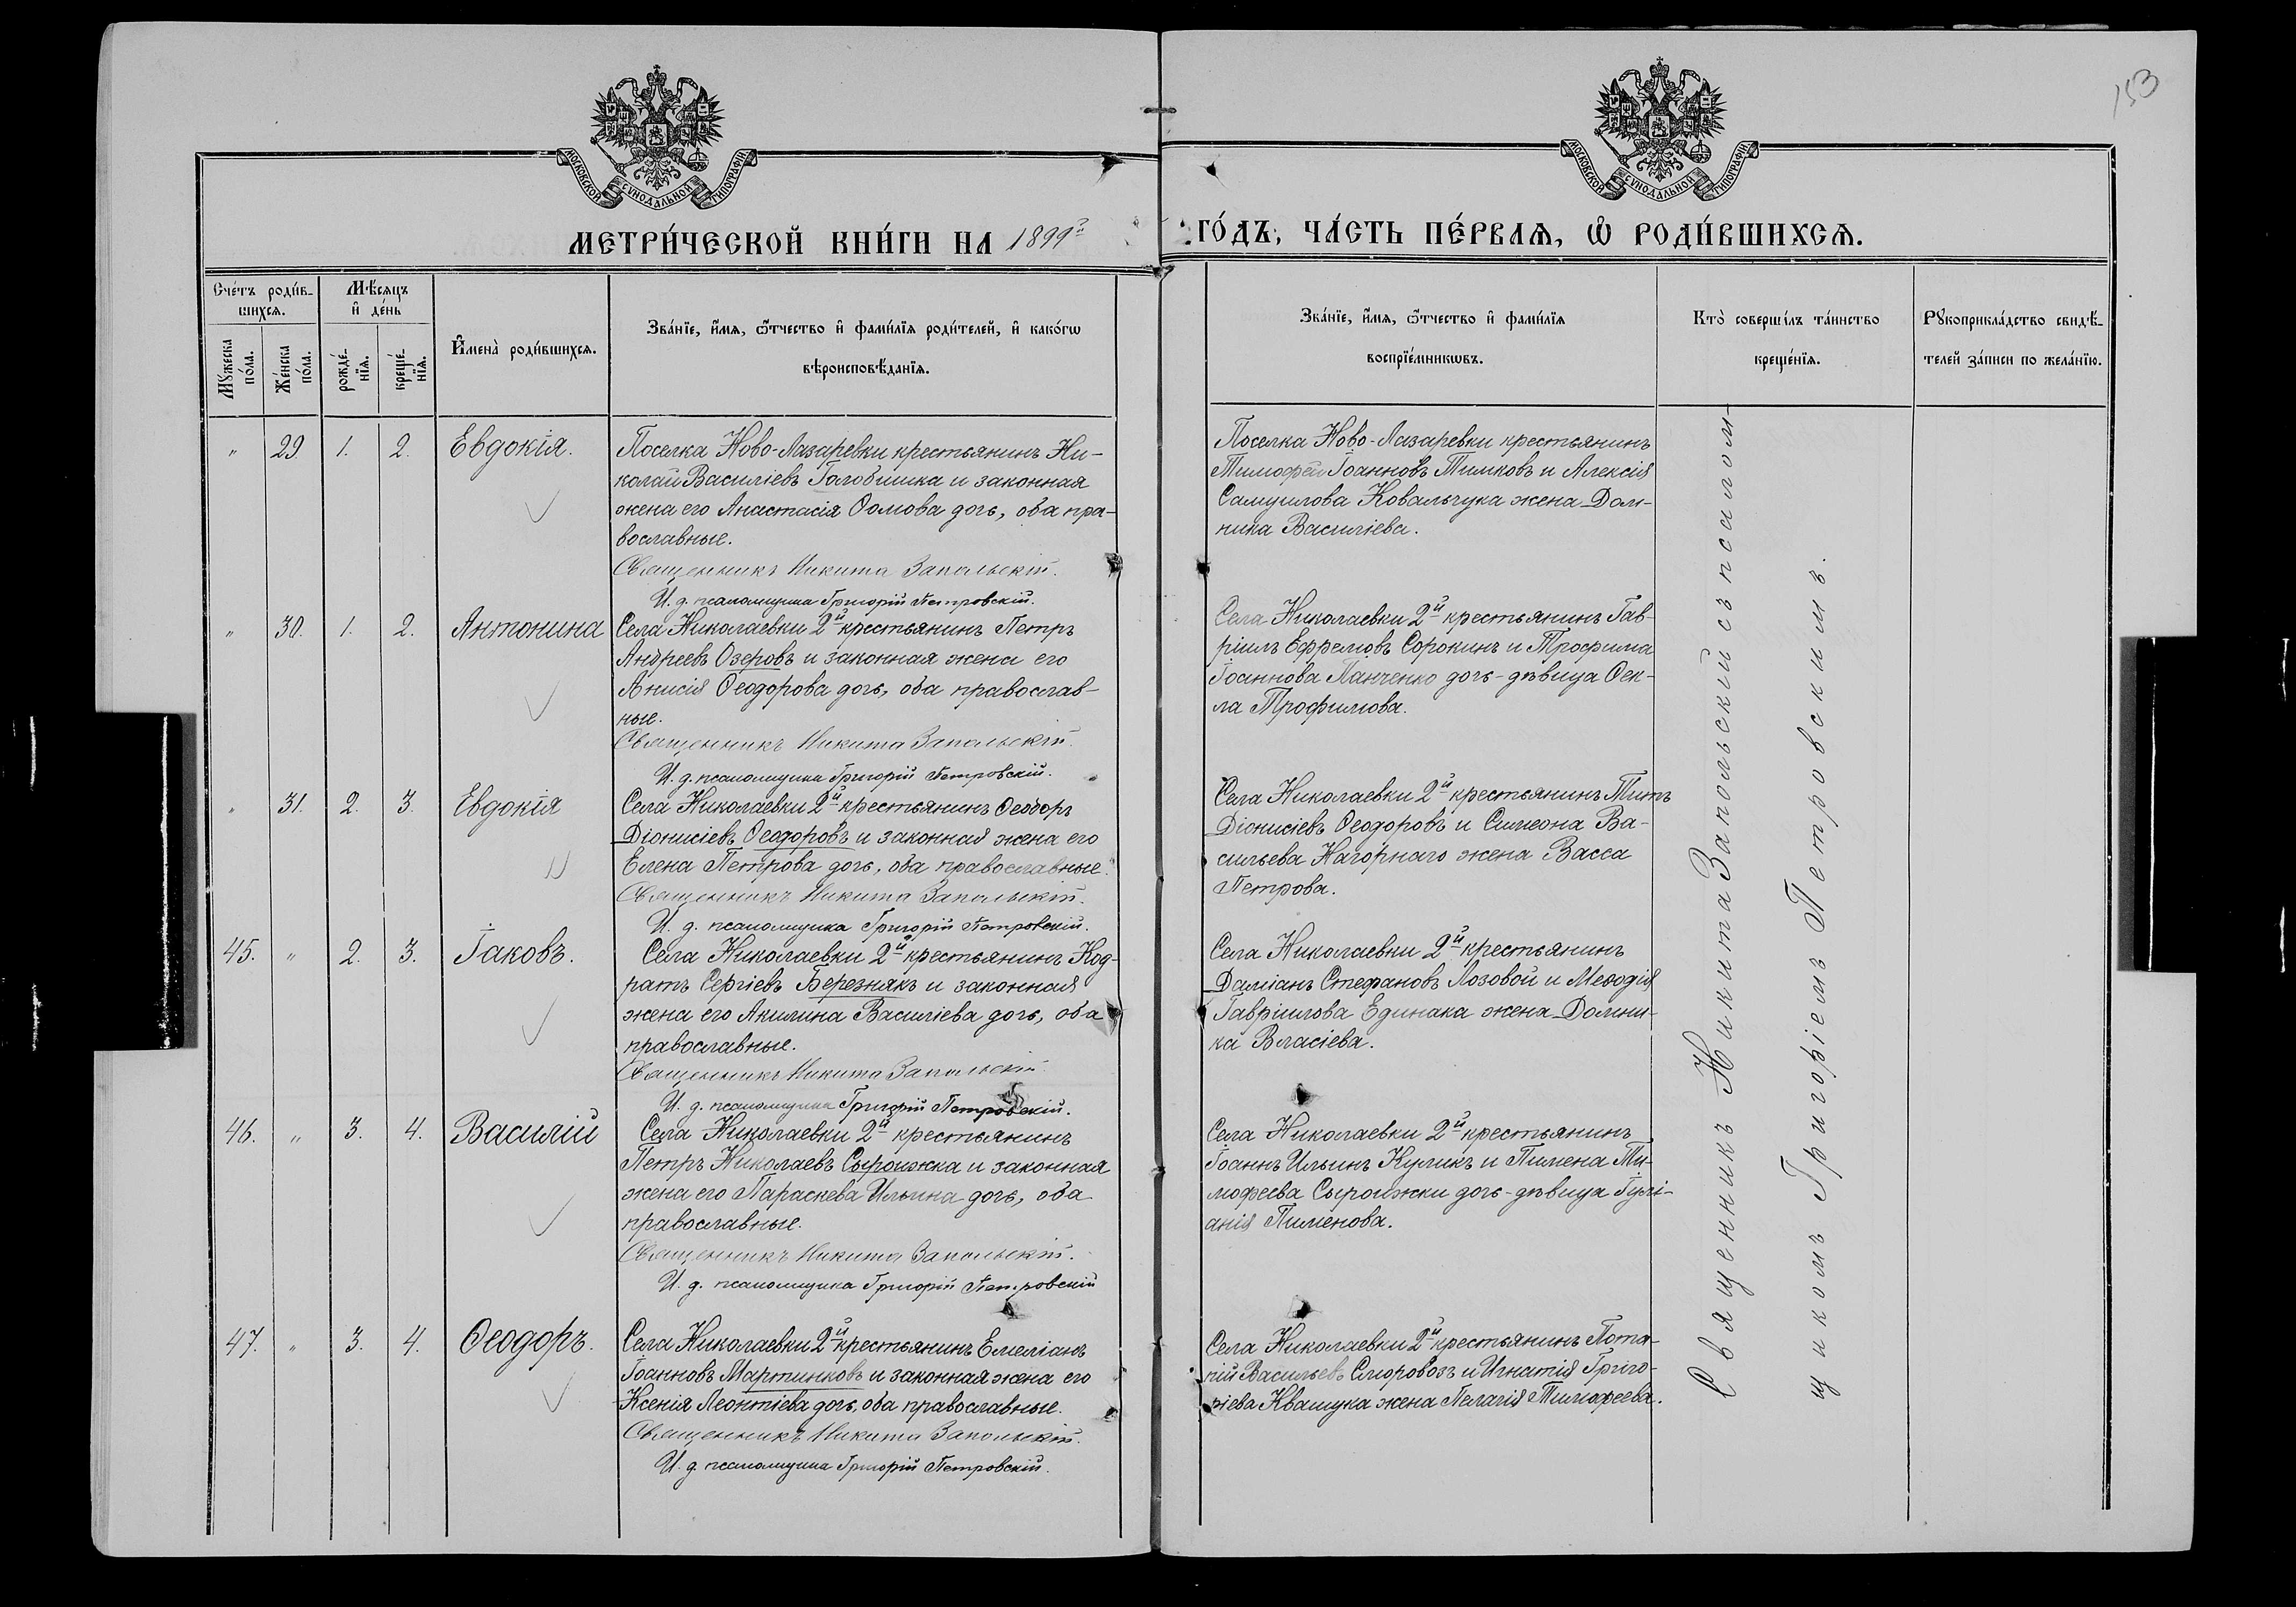 153
МОСКОВСКОЙ СѴНОДАЛЬНОЙ ТИПОГРАФІИ
МОСКОВСКОЙ СѴНОДАЛЬНОЙ ТИПОГРАФІИ
МЕТРИ́ЧЕСКОЙ КНИ́ГИ НА 1899й
ГО́ДЪ, ЧА́СТЬ ПЕ́РВАѦ, Ѽ РОДИ́ВШИХСѦ.
Сче́тъ роди́в-
шихсѧ.
Мѣ́сѧцъ
и҆ де́нь
Мꙋ́жеска
по́ла.
Же́нска
по́ла.
рожде́-
нїѧ.
креще́-
нїѧ.
И҆мена̀ роди́вшихсѧ.
Зва́нїе, и҆́мѧ, ѻ҆́тчество и҆ фами́лїѧ роди́телей, и҆ како́гѡ
вѣроисповѣ́данїѧ.
Зва́нїе, и҆́мѧ, ѻ҆́тчество и҆ фами́лїѧ
воспрїе́мникѡвъ.
Кто̀ соверши́лъ та́инство
креще́нїѧ.
Рꙋкоприкла́дство свидѣ́-
телей за́писи по жела́нїю.
" 29 1. 2. Евдокія.
Поселка Ново-Лазаревки крестьянинъ Ни-
колай Василіевъ Голобишка и законная
жена его Анастасія Ѳомова дочь, оба пра-
вославные.
Священникъ Никита Запольскій.
И. д. псаломщика Григорій Петровскій.
Поселка Ново-Лазаревки крестьянинъ
Тимофей Іоанновъ Тимковъ и Алексія
Самуилова Ковальчука жена Дом-
ника Василіева.
" 30. 1. 2. Антонина
Села Николаевки 2й крестьянинъ Петръ
Андреевъ Озеровъ и законная жена его
Анисія Ѳеодорова дочь, оба православ-
ные.
Священникъ Никита Запольскій.
И. д. псаломщика Григорій Петровскій.
Села Николаевки 2й крестьянинъ Гав-
ріилъ Ефремовъ Сорокинъ и Трофима
Іоаннова Панченко дочь-дѣвица Ѳек-
ла Трофимова.
" 31. 2. 3. Евдокія
Села Николаевки 2й крестьянинъ Ѳеодоръ
Діонисіевъ Ѳеодоровъ и законная жена его
Елена Петрова дочь, оба православные.
Священникъ Никита Запольскій.
И. д. псаломщика Григорій Петровскій.
Села Николаевки 2й крестьянинъ Титъ
Діонисіевъ Ѳеодоровъ и Симеона Ва-
сильева Нагорнаго жена Васса
Петрова.
45. " 2. 3. Іаковъ.
Села Николаевки 2й крестьянинъ Код-
ратъ Сергіевъ Березнякъ и законная
жена его Акилина Василіева дочь, оба
православные.
Священникъ Никита Запольскій.
И. д. псаломщика Григорій Петровскій.
Села Николаевки 2й крестьянинъ
Даміанъ Стефановъ Лозовой и Меѳодія
Гавріилова Единака жена Домни-
ка Власіева.
46. " 3. 4. Василій
Села Николаевки 2й крестьянинъ
Петръ Николаевъ Сыроижка и законная
жена его Параскева Ильина дочь, оба
православные.
Священникъ Никита Запольскій.
И. д. псаломщика Григорій Петровскій
Села Николаевки 2й крестьянинъ
Іоаннъ Ильинъ Куликъ и Пимена Ти-
мофеева Сыроижки дочь-дѣвица Іулі-
анія Пименова.
47. " 3. 4. Ѳеодоръ.
Села Николаевки 2й крестьянинъ Емеліанъ
Іоанновъ Мартинковъ и законная жена его
Ксенія Леонтіева дочь, оба православные.
Священникъ Никита Запольскій.
И. д. псаломщика Григорій Петровскій.
Села Николаевки 2й крестьянинъ Пота-
пій Васильевъ Сыровозъ и Игнатія Григо-
ріева Квашука жена Пелагія Тимофеева.
Священникъ Никита Запольскій съ псалом-
щикомъ Григоріемъ Петровскимъ.